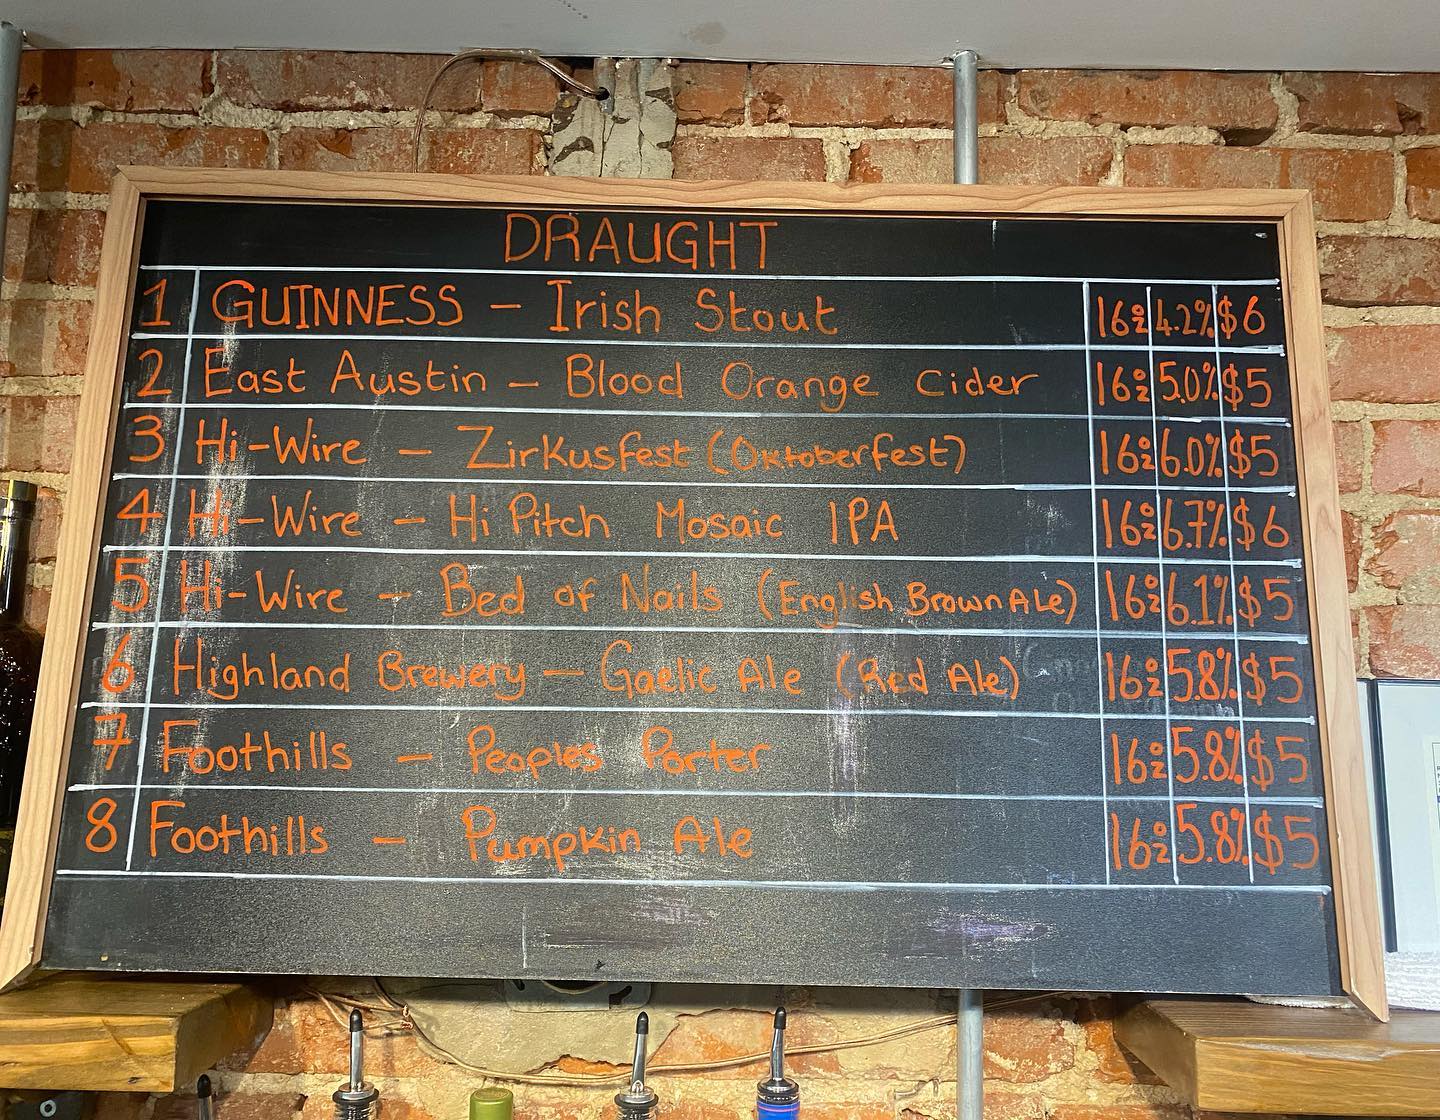 DRAUGHT
1 GUINNESS – Irish Stout 16oz 4.2% $6
2 East Austin – Blood Orange Cider 16oz 5.0% $5
3 Hi-Wire – Zirkusfest (Oktoberfest) 16oz 6.0% $5
4 Hi-Wire – Hi Pitch Mosaic IPA 16oz 6.7% $6
5 Hi-Wire – Bed of Nails (English Brown Ale) 16oz 6.1% $5
6 Highland Brewery – Gaelic Ale (Red Ale) 16oz 5.8% $5
7 Foothills – Peoples Porter 16oz 5.8% $5
8 Foothills – Pumpkin Ale 16oz 5.8% $5